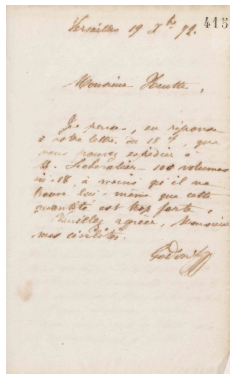 415
Versailles 19 Xbre 72.
Monsieur
Je pense, en réponse
à votre lettre du 18 Ct, que
vous pouvez expédier à
M. Lechevalier 100 volumes
in-18, à moins qu'il ne
trouve lui-même que cette
quantité est trop forte,
Veuillez agréer, Monsieur
mes civilités.
Godin